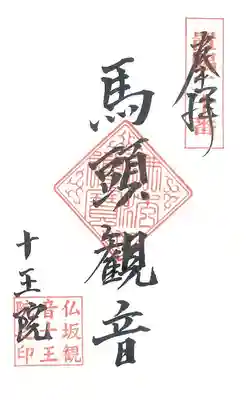 奉拝
馬頭觀音
十王院
仏坂観
音十王
院印